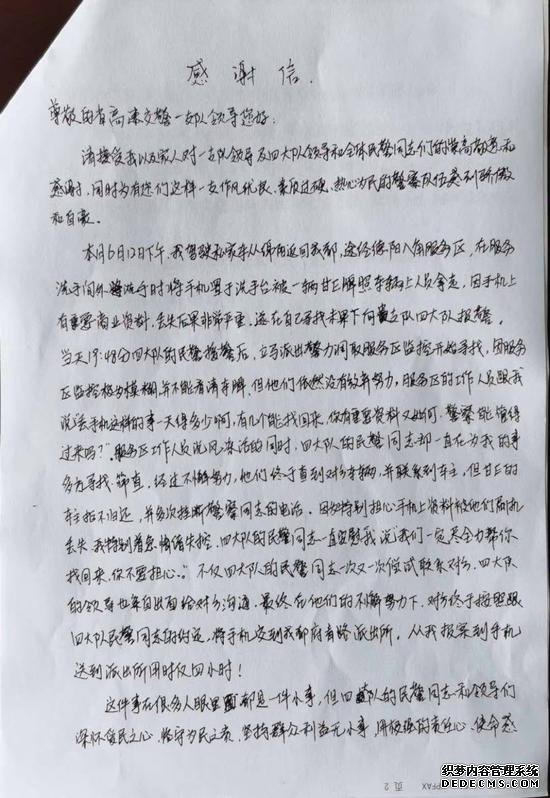 感谢信.
尊敬的省高速交警一支队领导您好:
请接受我以及家人对一支队领导及四大队领导和全体民警同志们的崇高敬意和
感谢,同时为有您们这样一支作风优良、素质过硬、热心为民的警察队伍感到骄傲
和自豪。
本月6日12日下午,我驾驶私家车从绵阳返回成都,途经德阳八角服务区,在服务
洗手间外洗手时将手机置于洗手台被一辆甘E牌照车辆上人员拿走,因手机上
有重要商业资料,丢失后果非常严重,遂在自己寻找未果下向贵支队四大队报警。
当天17:48分四大队的民警接警后,立马派出警力调取服务区监控开始寻找,因服务
区监控极为模糊并不能看清车牌,但他们依然没有放弃努力,服务区的工作人员跟我
说“丢手机这样的事一天得多少啊,有几个能找回来,你有重要资料又如何,警察能管得
过来吗?”,服务区工作人员说风凉话的同时,四大队的民警同志却一直在为我的事
多方寻找、筛查,经过不懈努力,他们终于查到对方车辆,并联系到车主,但甘E的
车主拒不归还,并多次挂断警察同志的电话,因她特别担心手机上资料被他们刷机
丢失,我特别着急情绪失控,四大队的民警同志一直安慰我说“我们一定尽全力帮你
找回来,你不要担心。”不仅四大队的民警同志一次又一次尝试联系对方,四大队
的领导也亲自出面给对方沟通,最终在他们的不懈努力下,对方终于按照跟
四大队民警同志的约定,将手机交到成都府青路派出所,从我报案到手机
送到派出所用时仅四小时!
这件事在很多人眼里都是一件小事,但四大队的民警同志和领导们
深怀爱民之心、恪守为民之责、坚持群众利益无小事,用极强的责任心、使命感
页 2
PFAX
织梦内容管理系统
DEDECMS.COM